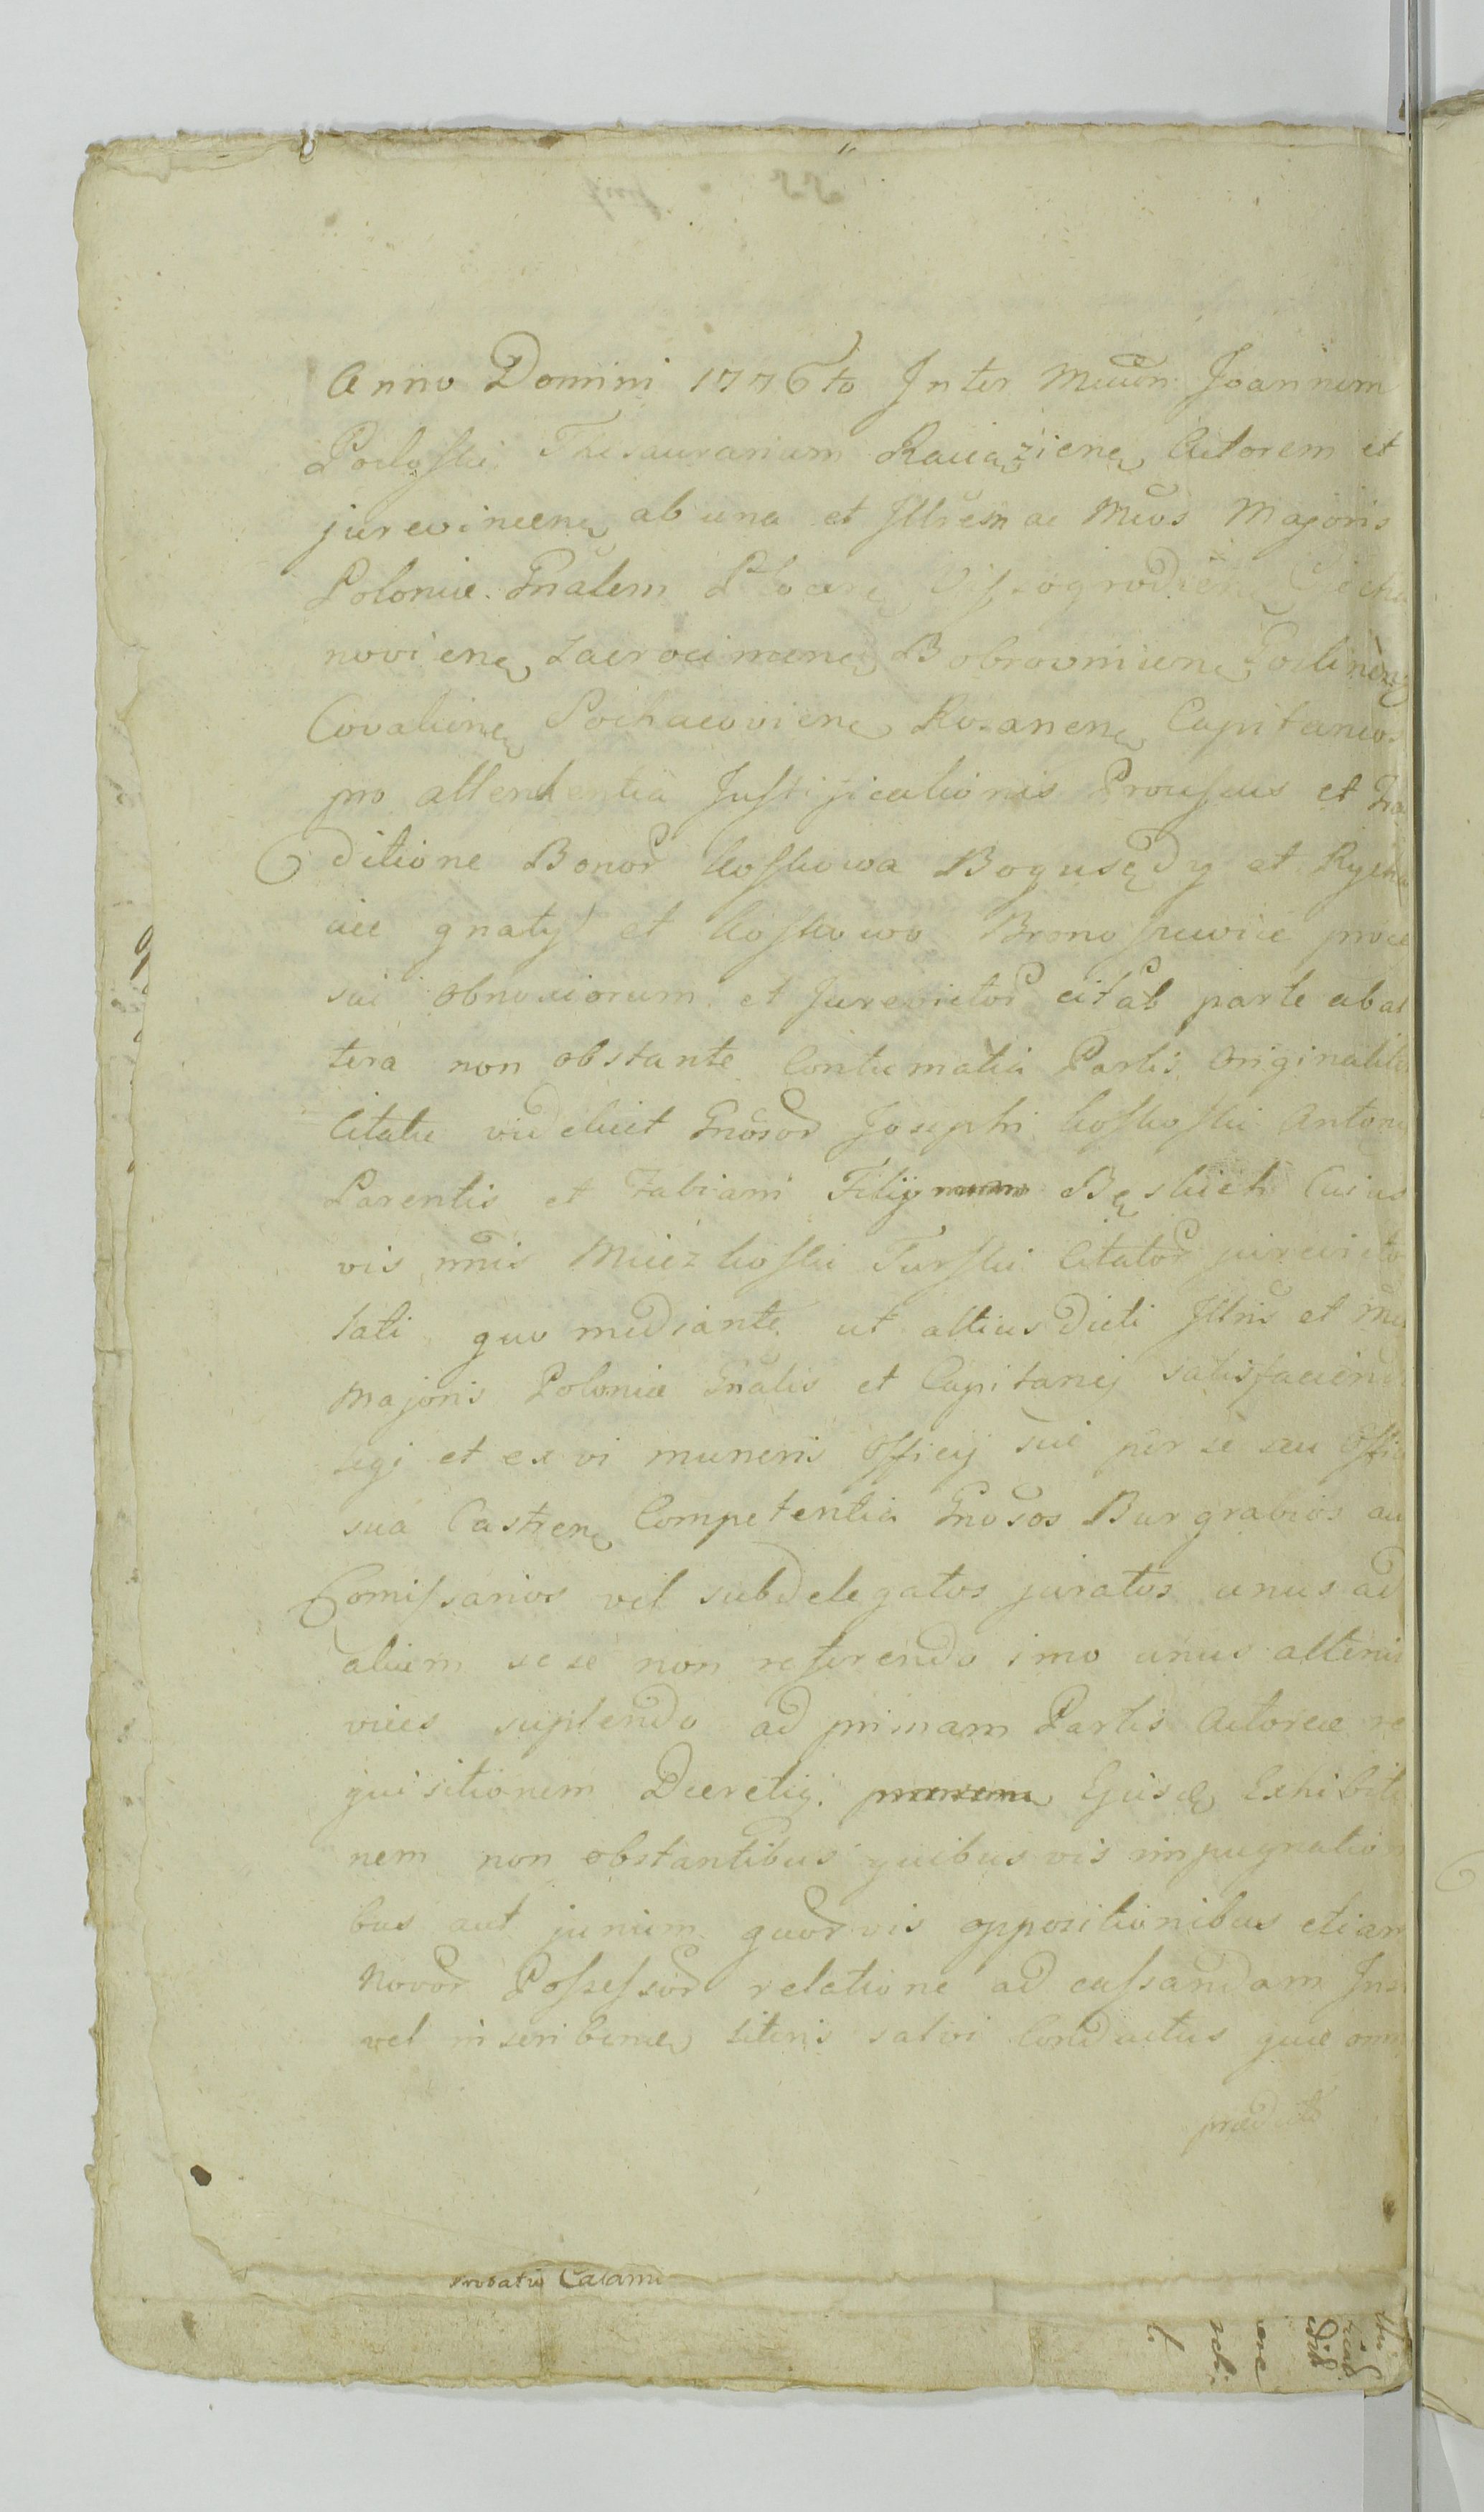 Anno Domini 1776to Inter Mcum Joannem
Podoski Thesaurarium Raciąziens Actorem et
jurevincens ab una et Illrem ac Mcos Majoris
Poloniæ Gnalem Plocens Wyszogrodiens Ciecha
noviens Zacrocimens Bobrovniens Gostinens
Covaliens Sochacoviens Rosanens Capitaneos
pro attendentia Justificationis Processus et tra
ditione Bonor Koskowa Bogusędy et Rycha
cice gnaty et Koskowo Bronoszewice proces
sui obnoxiorum et jurevictor citat parte ab al
tera non obstante Contumatia Partis Originalit
Citatæ videlicet Gnosor Josephi Koskoski Antoni
Parentis et Fabiani Filij Bęskich Cujus
vis nnis Miczkoski Turski Citator jurevicto
lati quo mediante ut altius dicti Illris et Mci
Majoris Poloniæ Gnalis et Capitanej satisfaciend
legi et ex vi muneris Officij sui per se seu Offici
sua Castrens Competentia Gnosos Burgrabios au
Comissarios vel subdelegatos juratos unus ad
alium sese non referendo imo unus alterius
vices suplendo ad primam Partis Actoreæ re
quisitionem Decretiq. Ejusd Exhibitio
nem non obstantibus quibusvis impugnation
bus aut jurium quorvis oppositionibus etiam
Novor Possessor relatione ad cassandam Ins
vel inscribend literis salvi Conductus quæ omn
prædict
Probatio Calami